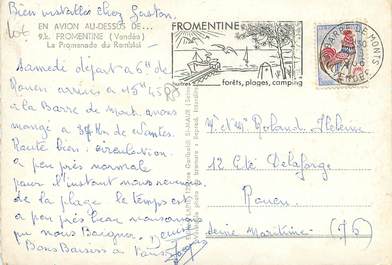 Bien installés chez Gaston.
EN AVION AU-DESSUS DE...
9.k. FROMENTINE (Vendée)
La Promenade du Remblai
Samedi départ à 6h de
Rouen arrivée à 15h45
à la Barre de Monts, avons
mangé à 37 Km de Nantes.
Route bien : circulation
à peu près normale
pour l'instant nous revenons
de la plage le temps est
à peu près beau nous avons
pu nous Baigner.
Bons Baisers à Tous
FROMENTINE
forêts, plages, camping
BARRE DE MONTS
VENDEE
M. et Mme Roland
12 Cité Delaforge
Rouen
Seine Maritime (76)